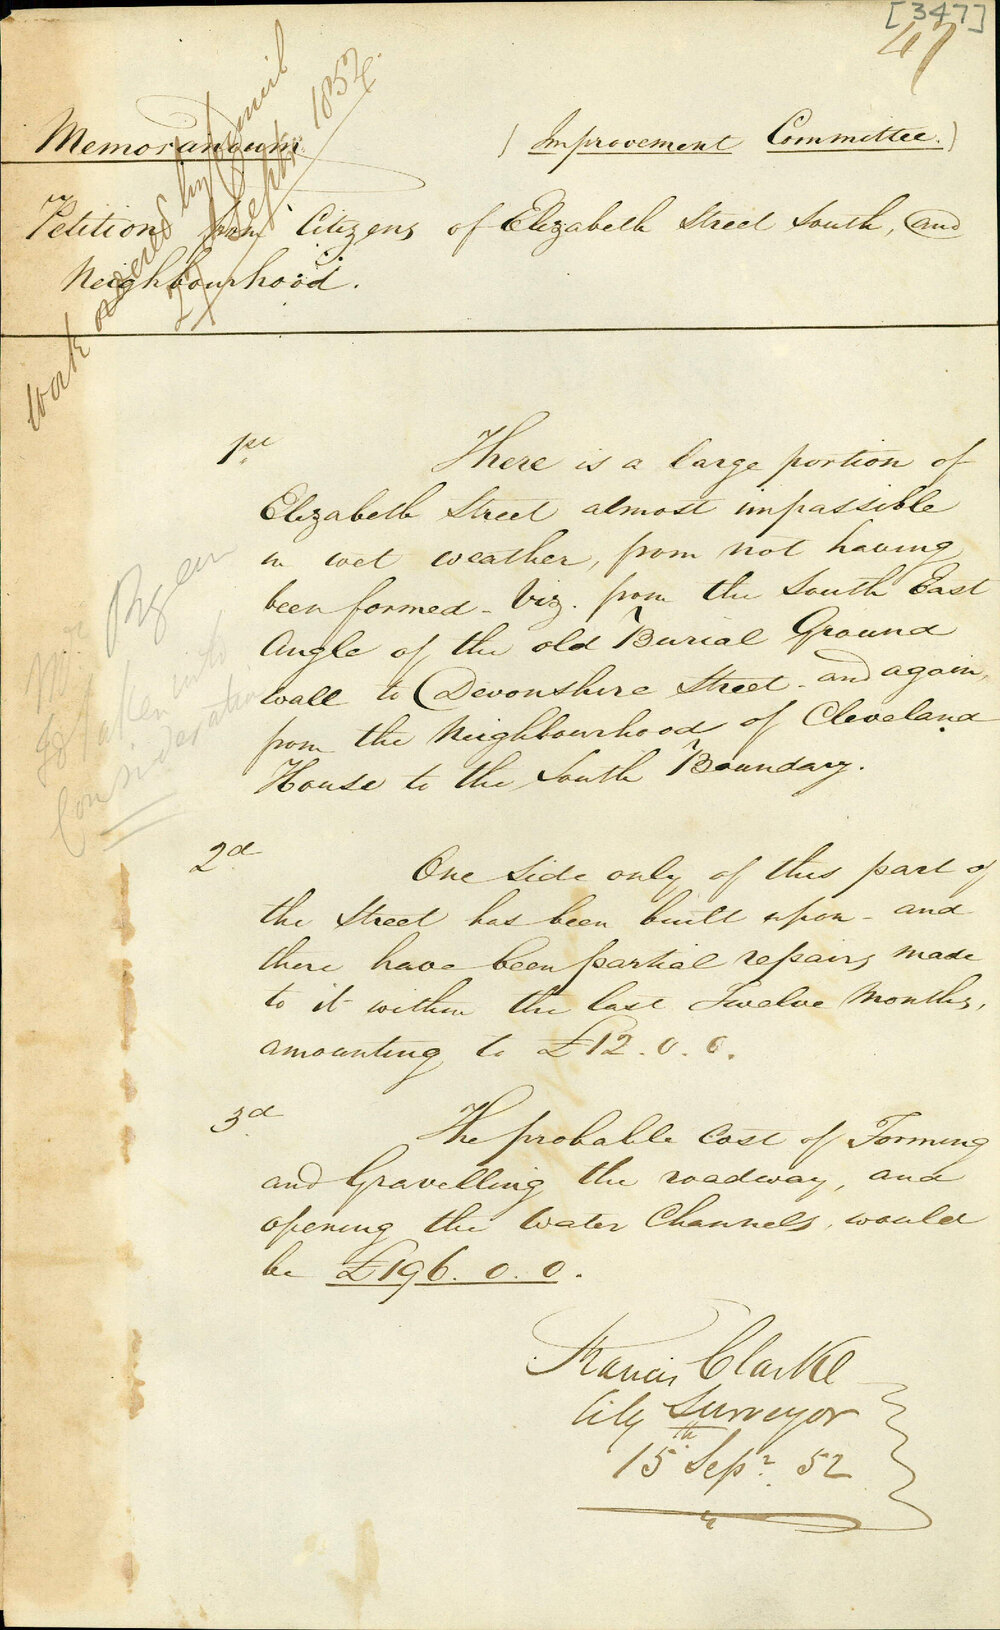 [347]
47
Memorandum (Improvement Committee.)
Petition from Citizens of Elizabeth Street South, and
Neighbourhood.
Work ordered by Council
27 Septr. 1852.
1st. There is a large portion of
Elizabeth Street almost impassible
in wet weather, from not having
been formed - Viz. from the South East
Angle of the old Burial Ground
wall to Devonshire Street - and again,
from the Neighbourhood of Cleveland
House to the South Boundary.
to taken into
Consideration
2d One side only of this part of
the Street has been built upon - and
there have been partial repairs made
to it within the last Twelve Months,
amounting to £12.0.0.
3d The probable Cost of Forming
and Gravelling the roadway, and
opening the Water Channels, would
be £196.0.0.
Francis Clarke
City Surveyor
15th Sepr. 52